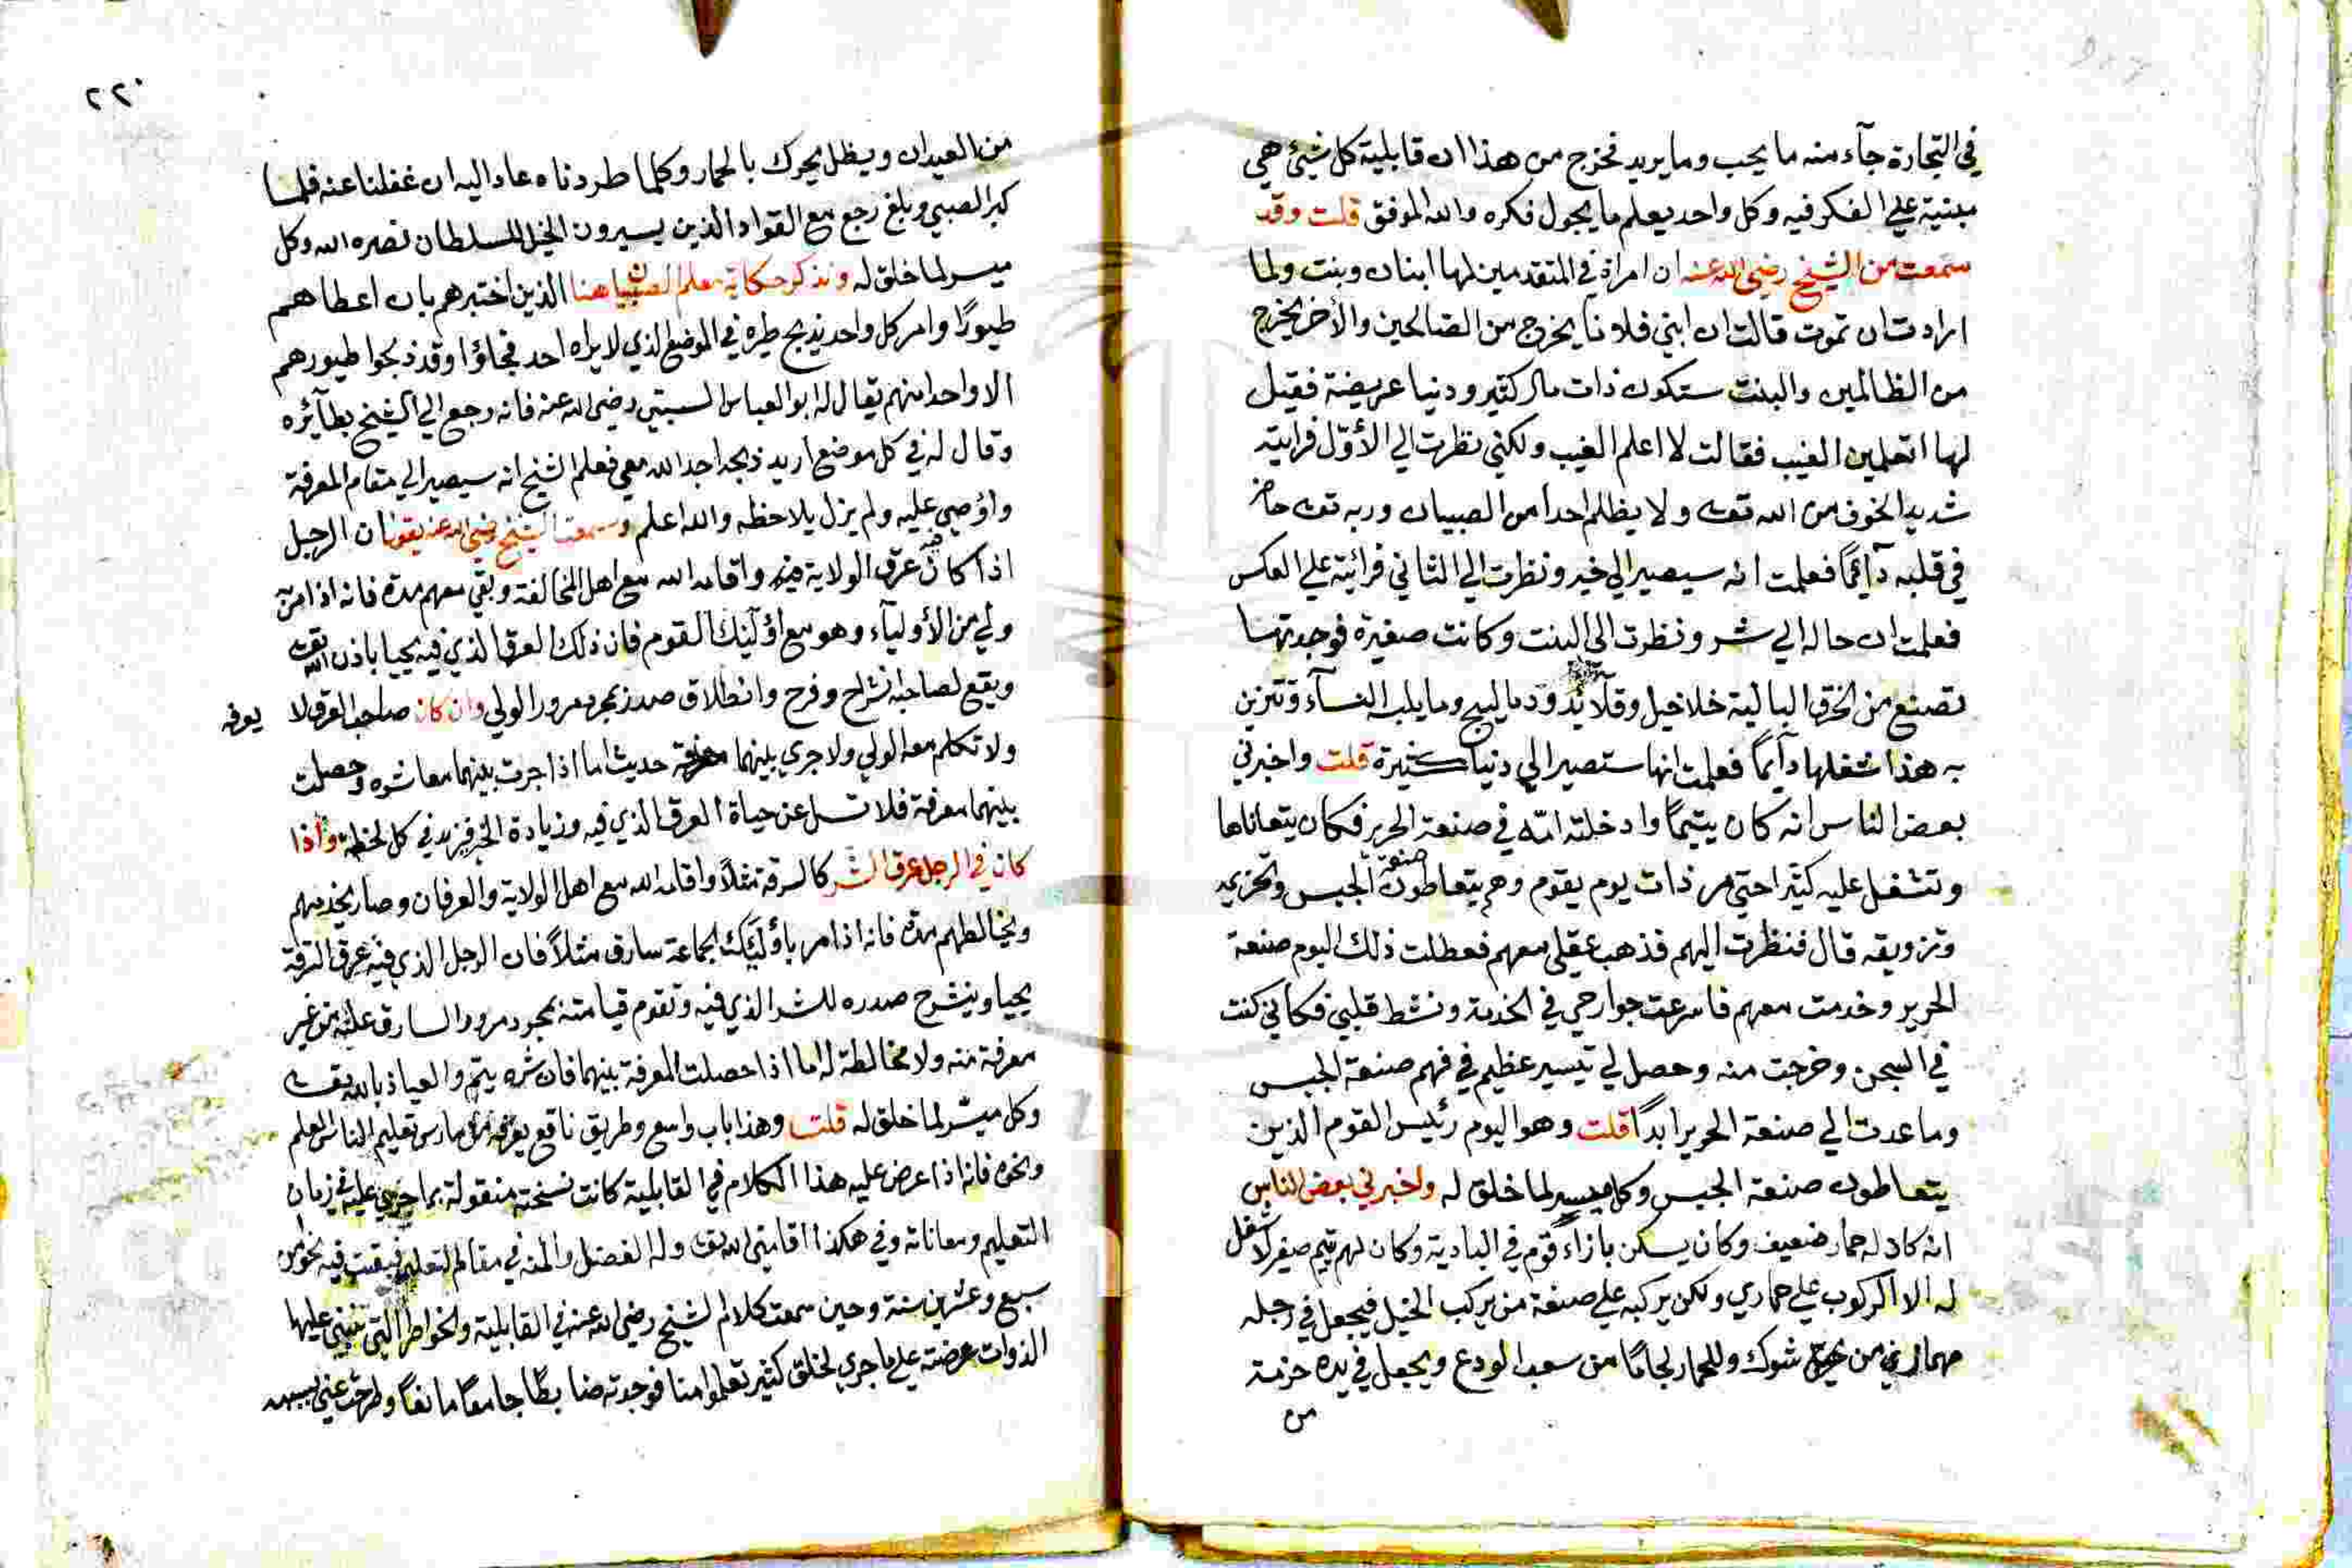 في التجارة جآء منه ما يحب وما يريد فخرج من هذا ان قابلية كل شيئ هي
مبنية علي الفكر فيه وكل واحد يعلم ما يجول فكره والله الموفق قلت وقد
سمعت من الشيخ رضي الله عنه ان امراة في المتقدمين لها ابنان وبنت ولما
ارادت ان تموت قالت ان ابني فلانا يخرج من الصالحين والأخر يخرج
من الظالمين والبنت ستكون ذات مال كثير ودنيا عريضة فقيل
لها اتعلمين الغيب فقالت لا اعلم الغيب ولكني نظرت الي الأوّل فرايته
شديد الخوف من الله تعه ولا يظلم احدا من الصبيان وربه تعه حاضر
في قلبه دآئما فعلمت انه سيصير الي خير ونظرت الي الثاني فرائيته علي العكس
فعلمت ان حاله الي شر ونظرت الي البنت وكانت صغيرة فوجدتها
تصنع من الخرق البالية خلاخيل وقلآئد ودماليج وما يلبسه النسآء وتتزين
به هذا شغلها دآئما فعلمت انها ستصير الي دنيا كثيرة قلت واخبرني
بعض الناس انه كان يتيما وادخلته امّه في صنعة الحرير فكان يتعاناها
وتتشغل عليه كثيرا حتي مر ذات يوم بقوم وهم يتعاطون صنعة الجبس وتخزيمه
وتزويقه قال فنظرت اليهم فذهب عقلي معهم فعطلت ذلك اليوم صنعة
الحرير وخدمت معهم فاسرعت جوارحي في الخدمة ونشط قلبي فكاني كنت
في السجن وخرجت منه وحصل لي تيسير عظيم في فهم صنعة الجبس
وما عدت الي صنعة الحرير ابدًا قلت وهو اليوم رئيس القوم الذين
يتعاطون صنعة الجبس وكل ميسر لما خلق له واخبرني بعض الناس
انه كان له حمار ضعيف وكان يسكن بازاء قوم في البادية وكان لهم يتيم صغير لا شغل
له الا الركوب علي حماري ولكن يركبه علي صنعة من يركب الخيل فيجعل في رجله
مهمازين من شوك وللحمار لجاما من سعب الودع ويجعل في يده حزمة
من
٢٢٠
من العيدان ويظل يحرك بالحمار وكلما طردناه عاد اليه ان غفلنا عنه فلما
كبر الصبي وبلغ رجع مع القواد الذين يسيرون الخيل للسلطان نصره الله وكل
ميسر لما خلق له ونذكر حكاية معلم الصبيان هنا الذين اختبرهم بان اعطاهم
طيورًا وامر كل واحد يذبح طيره في الموضع الذي لا يراه احد فجاؤا وقد ذبحوا طيورهم
الا واحدا منهم يقال له ابو العباس السبتي رضي الله عنه فانه رجع الي الشيخ بطآئره
وقال له في كل موضع اريد ذبحه اجد الله معي فعلم الشيخ انه سيصير الي مقام المعرفة
واؤصي عليه ولم يزل يلاحظه والله اعلم وسمعت الشيخ رضي الله عنه يقول ان الرجل
اذا كان فيه عرق الولاية واقامه الله مع اهل المخالفة وبقي معهم مدة فانه اذا مرّ
ولي من الأوليآء وهو مع اؤلئك القوم فان ذلك العرق الذي فيه يحيا باذن الله تعه
ويقع لصاحبه انشراح وفرح وانطلاق صدر بمجرد مرور الولي وان كان صاحب العرق لا يعرفه
ولا تكلم معه الولي ولا جري بينهما حديث اما اذا جرت بينهما معاشره وحصلت
بينهما معرفة فلا تسل عن حياة العرق الذي فيه وزيادة الخير فيزيد في كل لحظة واذا
كان في الرجل عرق الشر كالسرقة مثلاً واقامه الله مع اهل الولاية والعرفان وصار يخدمهم
ويخالطهم مدة فانه اذا مر باؤلئك الجماعة سارق مثلاً فان الرجل الذي فيه عرق السرقة
يحيا وينشرح صدره للشر الذي فيه وتقوم قيامته بمجرد مرور السارق عليه من غير
معرفة منه ولا مخالطة له اما اذا حصلت المعرفة بينهما فان شره يتم والعياذ بالله تعه
وكل ميسّر لما خلق له قلت وهذا باب واسع وطريق نافع يعرفه من مارس تعليم الناس العلم
ونحوه فانه اذا عرض عليه هذا الكلام في القابلية كانت نسخته منقولة بما جري عليه في زمان
التعليم ومعاناته وفي هكذا اقامني الله تعه وله الفضل والمنة في مقام التعليم فبقيت فيه نحو من
سبع وعشرين سنة وحين سمعت كلام الشيخ رضي الله عنه في القابلية والخواطر التي تنبني عليها
الذوات عرضته علي ما جري لخلق كثير تعلموا منا فوجدته ضابطًا جامعا مانعًا وطرحت عني بسببه